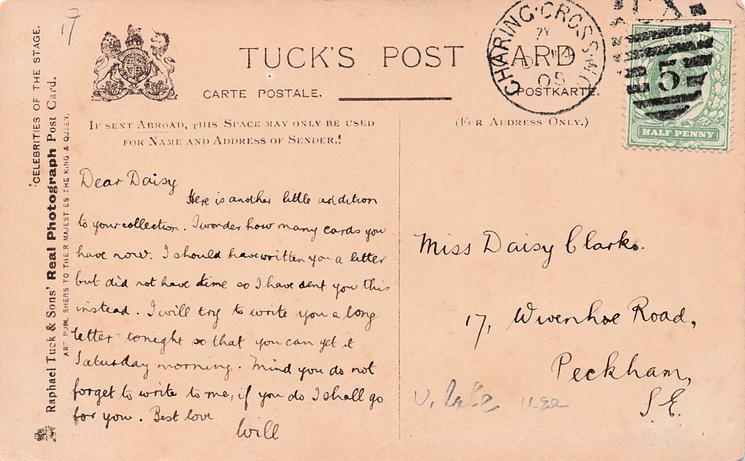 17
TUCK'S POST CARD
CARTE POSTALE.
POSTKARTE.
CHARING·CROSS·W.C
05
5
HALF PENNY
IF SENT ABROAD, THIS SPACE MAY ONLY BE USED
FOR NAME AND ADDRESS OF SENDER.!
(FOR ADDRESS ONLY.)
"CELEBRITIES OF THE STAGE.
Raphael Tuck & Sons' Real Photograph Post Card.
ART PUBLISHERS TO THEIR MAJESTIES THE KING & QUEEN.
Dear Daisy
Here is another little addition
to your collection. I wonder how many cards you
have now. I should have written you a letter
but did not have time so I have sent you this
instead. I will try to write you a long
letter tonight so that you can get it
Saturday morning. Mind you do not
forget to write to me, if you do I shall go
for you. Best love
Will
Miss Daisy Clark.
17, Wivenhoe Road,
Peckham,
S.E.